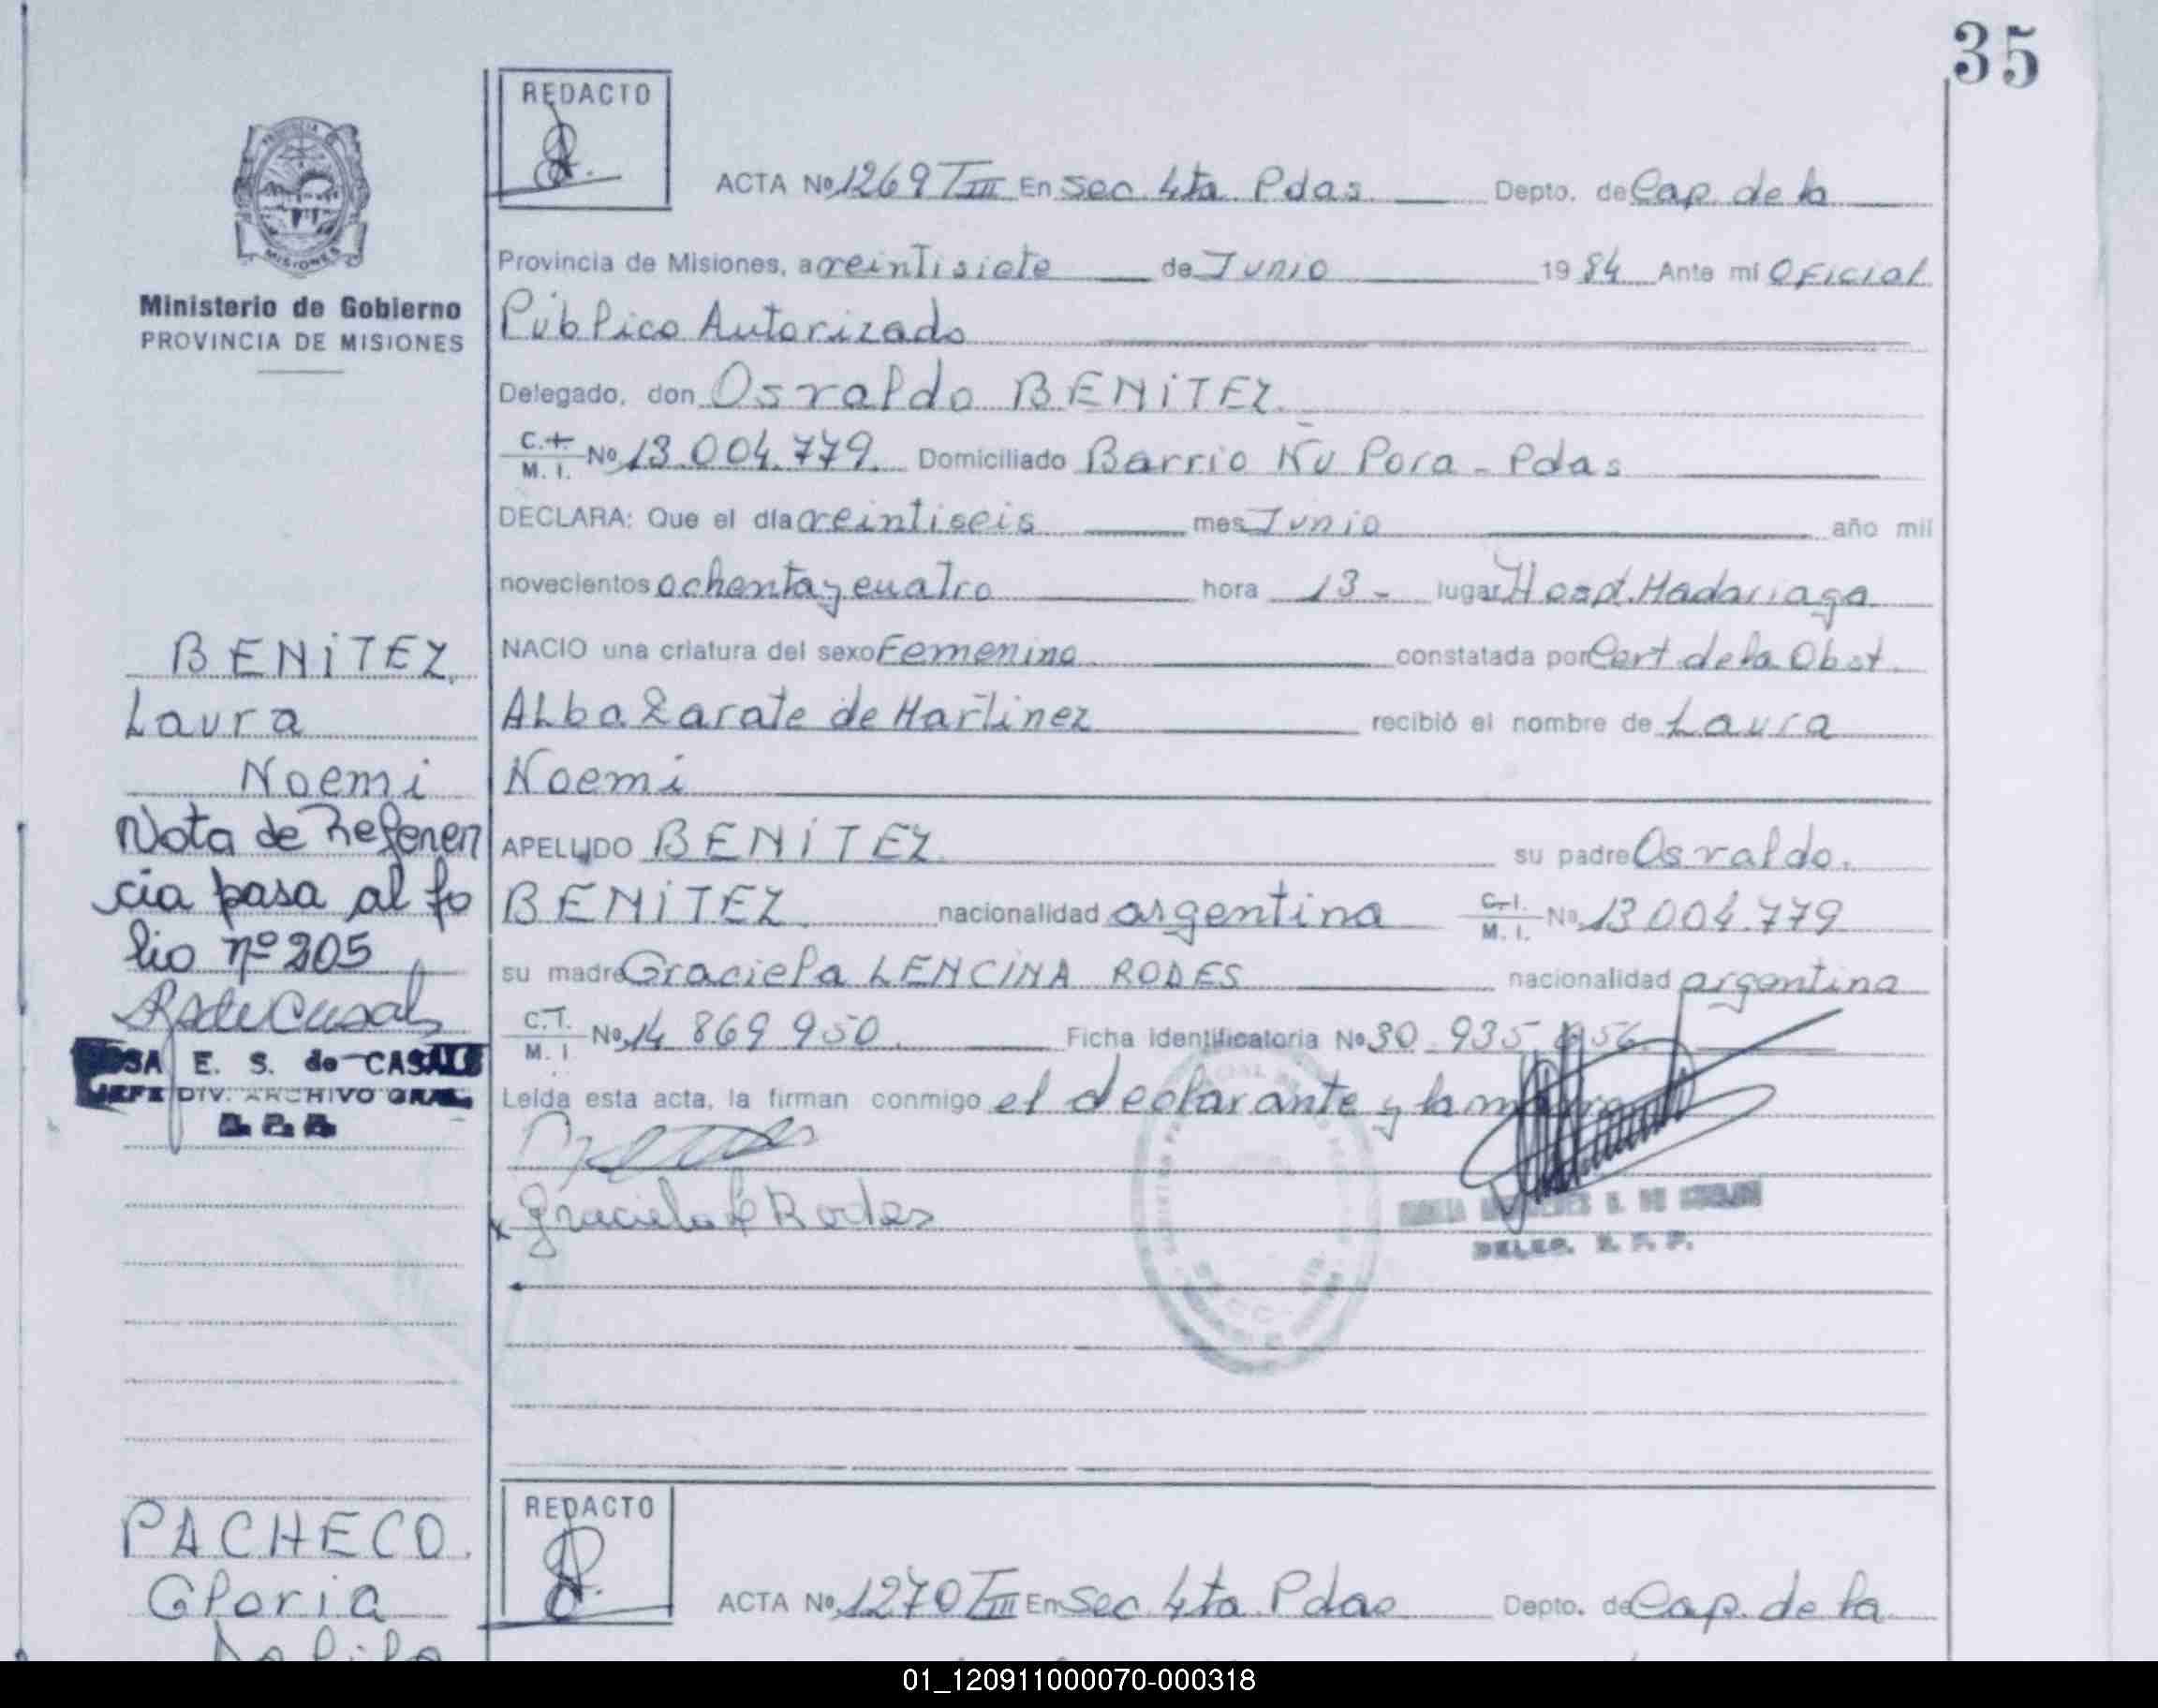 35
REDACTO
ACTA Nº 1269 TIII En Sec. 4ta Pdas. Depto. de Cap. de la
Provincia de Misiones, a veintisiete de Junio 1984 Ante mi Oficial
Ministerio de Gobierno
PROVINCIA DE MISIONES
Público Autorizado
Delegado, don Osvaldo BENiTEZ.
C.I. M. I. Nº 13.004.779. Domiciliado Barrio Ñu Pora - Pdas
DECLARA: Que el día veintiseis mes Junio año mil
novecientos ochenta y cuatro hora 13- lugar Hosp. Madariaga
NACIO una criatura del sexo Femenino constatada por Cert. de la Obst.
Alba Zarate de Martinez recibió el nombre de Laura
Noemi
APELLIDO BENiTEZ su padre Osvaldo.
BENiTEZ nacionalidad argentina C.I. M. I. Nº 13 004.779
su madre Graciela LENCINA RODES nacionalidad argentina
C.I. M. I. Nº 14 869 950. Ficha identificatoria Nº 30.935
Leída esta acta, la firman conmigo el declarante y la madre
Graciela L Rodes
DELEG. R. P. P.
BENiTEZ.
Laura
Noemi
Nota de Referen
cia pasa al fo
lio nº 205
ROSA E. S. de CASALS
JEFE DIV. ARCHIVO GRAL.
REDACTO
PACHECO.
Gloria
ACTA Nº 1270 TIII En Sec 4ta Pdas Depto. de Cap. de la
01_120911000070-000318